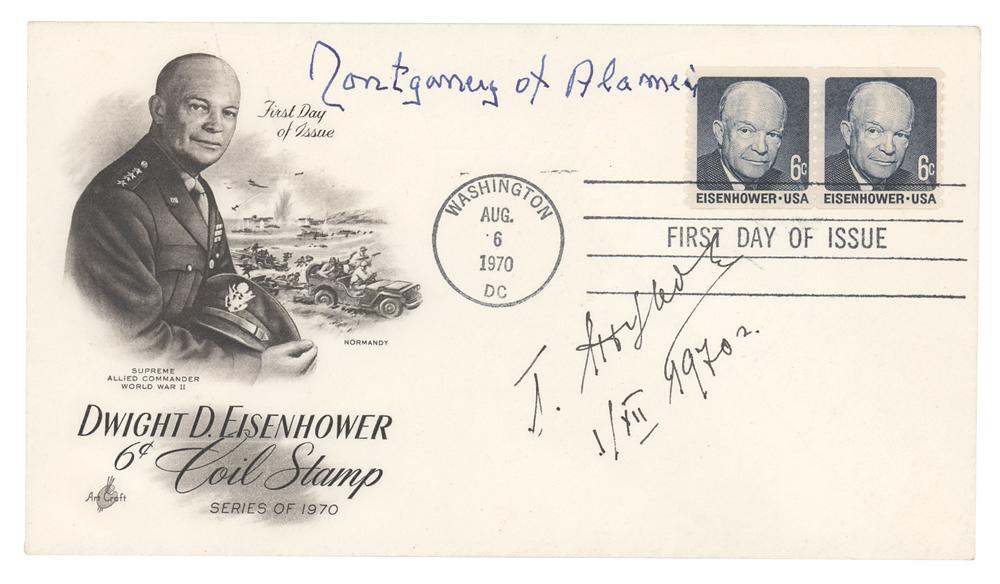 Montgomery of Alamein
First Day
of Issue
6c
6c
EISENHOWER·USA
EISENHOWER·USA
WASHINGTON
AUG.
6
1970
DC
FIRST DAY OF ISSUE
NORMANDY
SUPREME
ALLIED COMMANDER
WORLD WAR II
Г. Жуков
1/XII 1970 г.
DWIGHT D. EISENHOWER
6¢ Coil Stamp
SERIES OF 1970
Art Craft